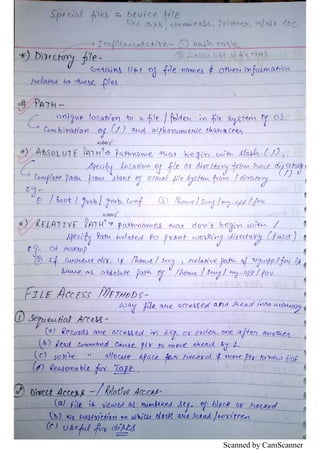 Special files = Device file
like disk, terminals, printer, n/w etc
→ Implementation - ① hash table
② linear list
*) Directory file -
contains list of file names & other information
related to these files
*) PATH -
unique location to a file / folder in file system of OS.
Combination of (/) and alphanumeric character
name
*) ABSOLUTE PATH → Pathname that begin with slash (/),
specify location of file or directory from root directory
Complete path from start of actual file system from / directory (/)
eg. -
① /boot/grub/grub.conf ②
name
*) RELATIVE PATH → pathnames that don't begin with /
specify path related to present working directory (pwd)
eg. cd desktop
② if current dir. is relative path of
same as absolute path of
FILE ACCESS METHODS -
way file are accessed and read into memory
① Sequential Access -
(a) Records are accessed in seq. or order one after another
(b) Read command cause ptr to move ahead by 1.
(c) write " allocate space for record & move ptr to new EOF
(d) Reasonable for Tape.
② Direct Access - / Relative Access -
(a) File is viewed as numbered seq. of block or record
(b) No restriction on which block are read / written
(c) Useful for disks
Scanned by CamScanner